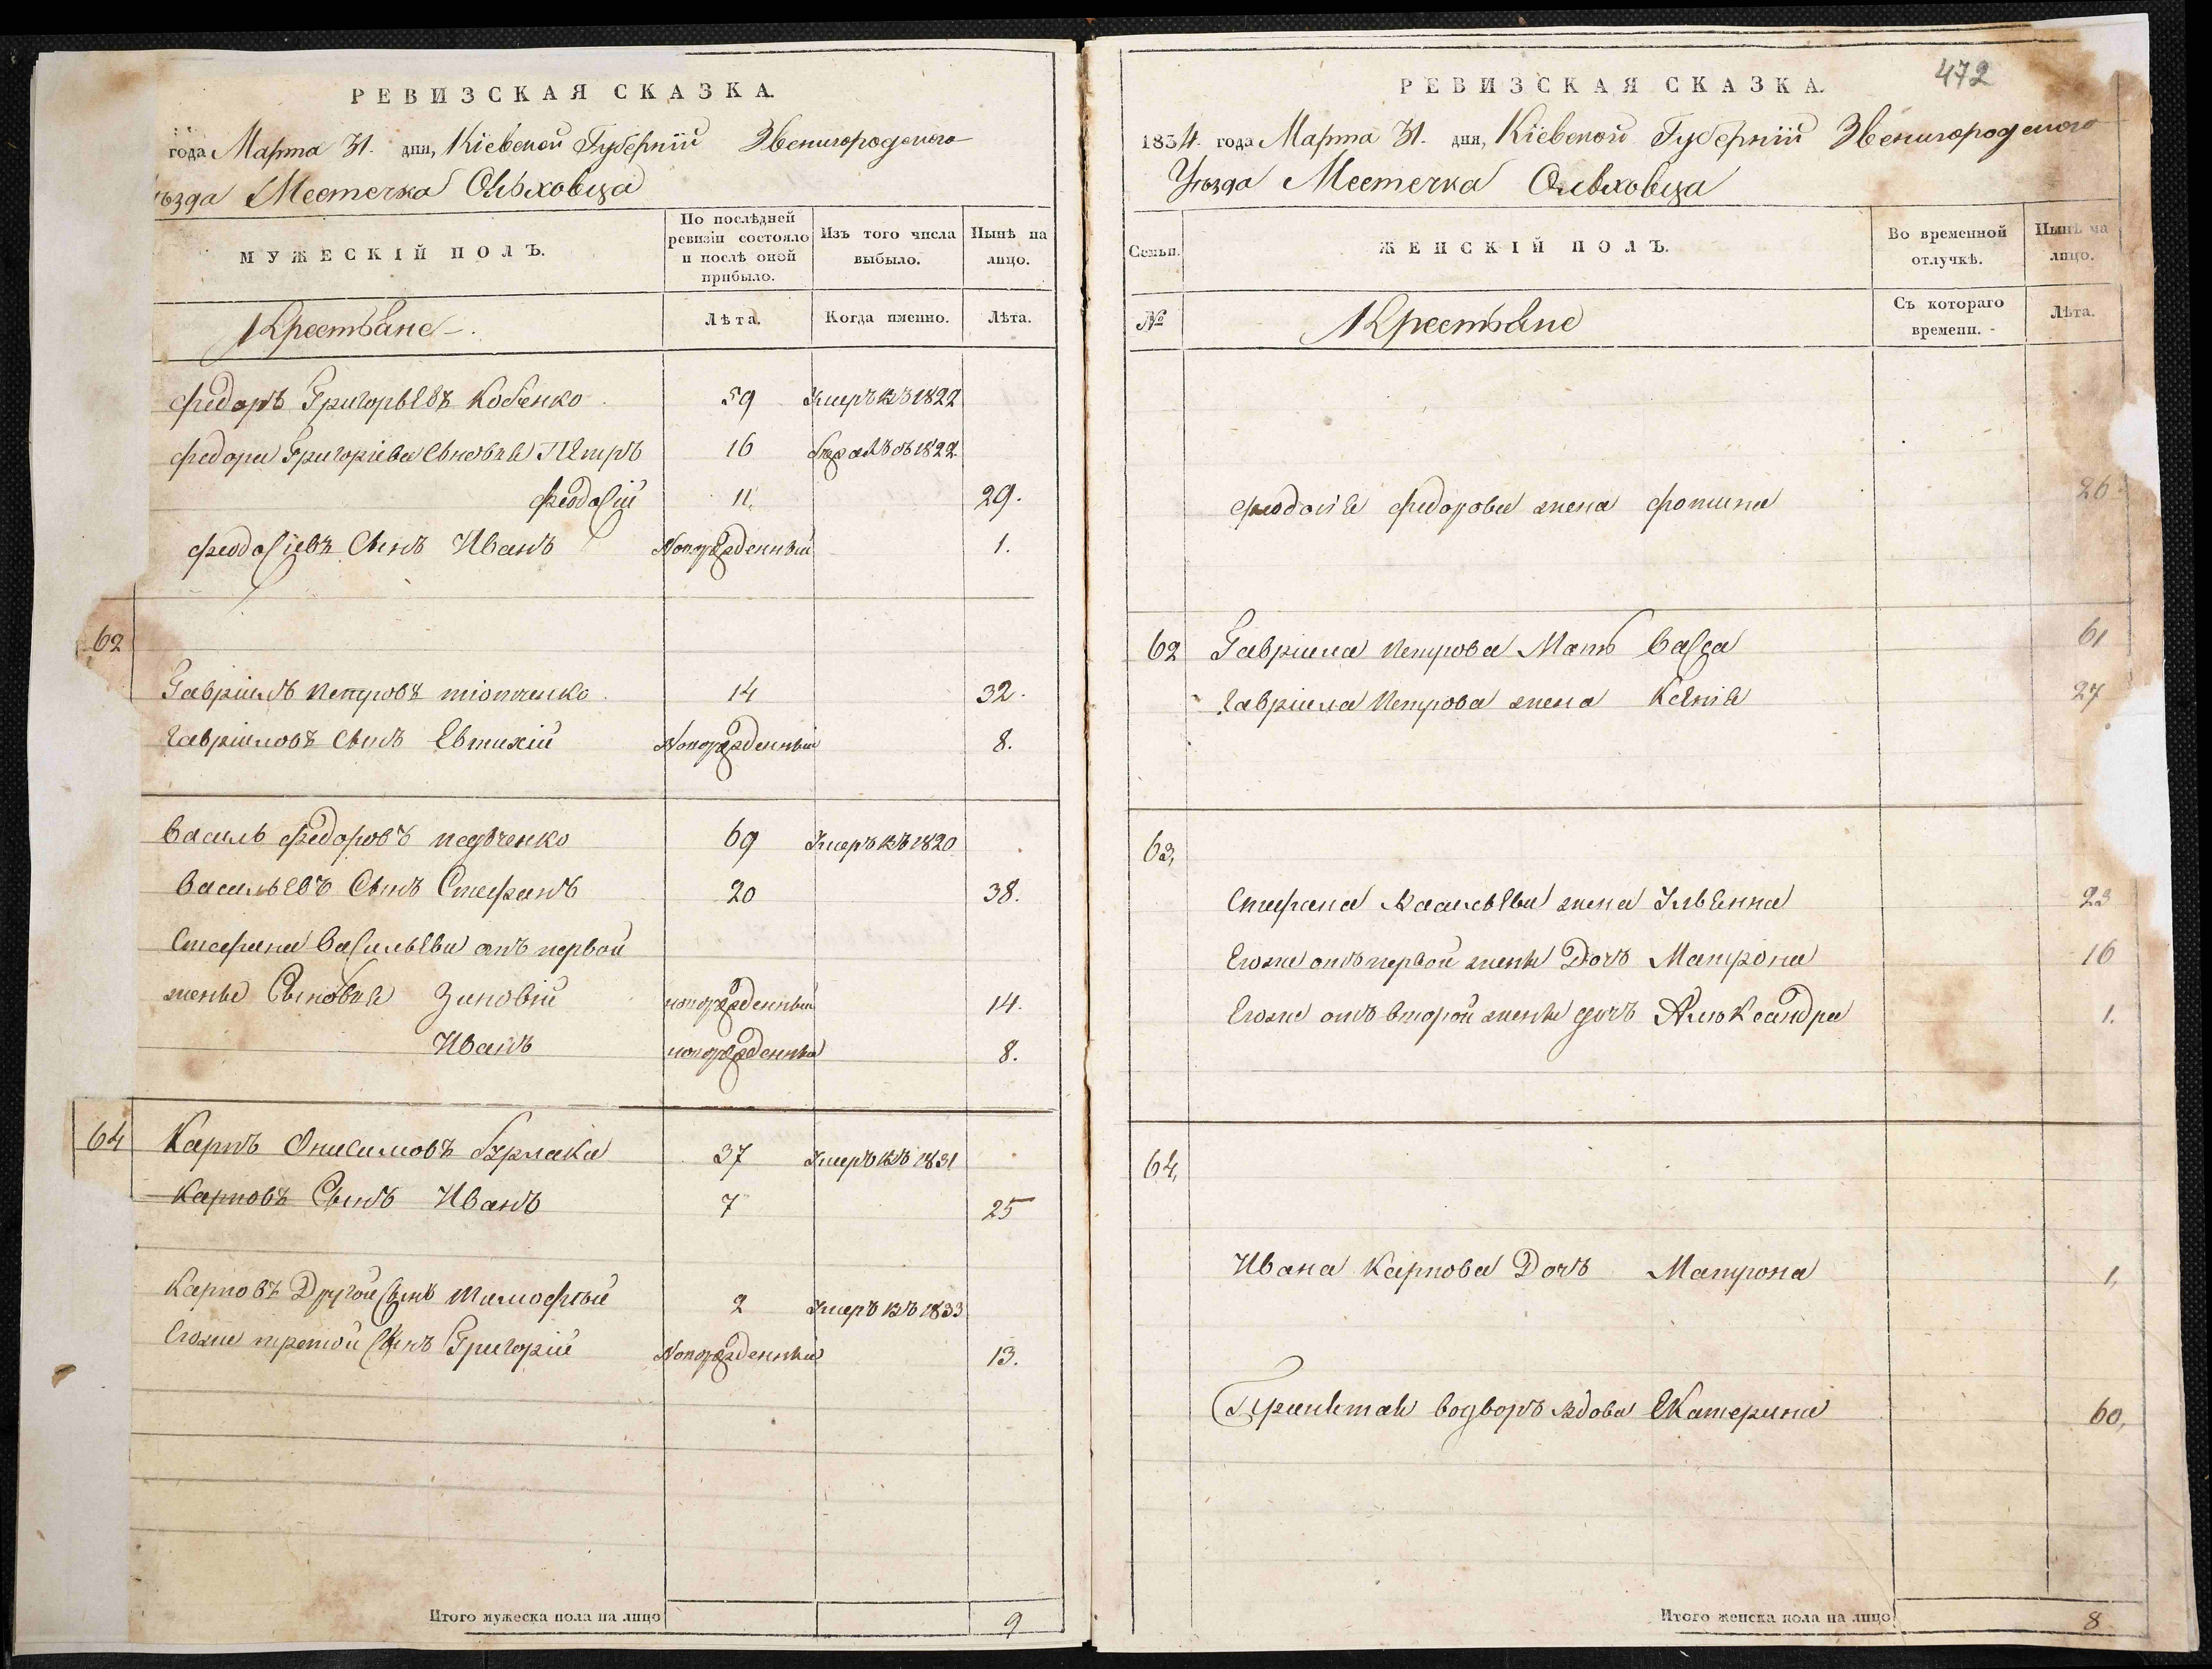 РЕВИЗСКАЯ СКАЗКА.
года Марта 31. дня, Кіевской Губерніи Звенигородского
ѣзда Местечка Ольховца
МУЖЕСКІЙ ПОЛЪ.
По послѣдней ревизіи состояло и послѣ оной прибыло.
Изъ того числа выбыло.
Нынѣ на лицо.
Крестьяне
Лѣта.
Когда именно.
Лѣта.
Федоръ Григорьевъ Кобенко 59 Умеръ въ 1822
Федора Григоріева Сыновья Петръ 16 1822
Феодосій 11 29.
Феодосіевъ Сынъ Иванъ Новорожденный 1.
62
Гавріилъ Петровъ 14 32.
Гавріиловъ Сынъ Евтихій Новорожденный 8.
Василь Федоровъ 69 Умеръ въ 1820
Васильевъ Сынъ Стефанъ 20 38.
Стефана Васильева отъ первой
жены Сыновья Зиновій новорожденный 14.
Иванъ новорожденный 8.
64 Карпъ Онисимовъ Бурлака 37 Умеръ въ 1831
Карповъ Сынъ Иванъ 7 25
Карповъ Другой Сынъ Тимофѣй 2 Умеръ въ 1833
Егоже третой Сынъ Григорій Новорожденный 13.
Итого мужеска пола на лицо 9
472
РЕВИЗСКАЯ СКАЗКА.
1834. года Марта 31. дня, Кіевской Губерніи Звенигородского
Уѣзда Местечка Ольховца
Семьи.
ЖЕНСКІЙ ПОЛЪ.
Во временной отлучкѣ.
Нынѣ на лицо.
№
Крестьяне
Съ котораго времени.
Лѣта.
Феодосія Федорова жена Фотина 26
62 Гавріила Петрова Мать Васса 61
Гавріила Петрова жена Ксенія 27
63,
Стефана Васильева жена Ульянна 23
Егоже отъ первой жены Дочь Матрона 16
Егоже отъ второй жены дочь Александра 1.
64,
Ивана Карпова Дочь Матрона 1,
вдова Екатерина 60,
Итого женска пола на лицо 8